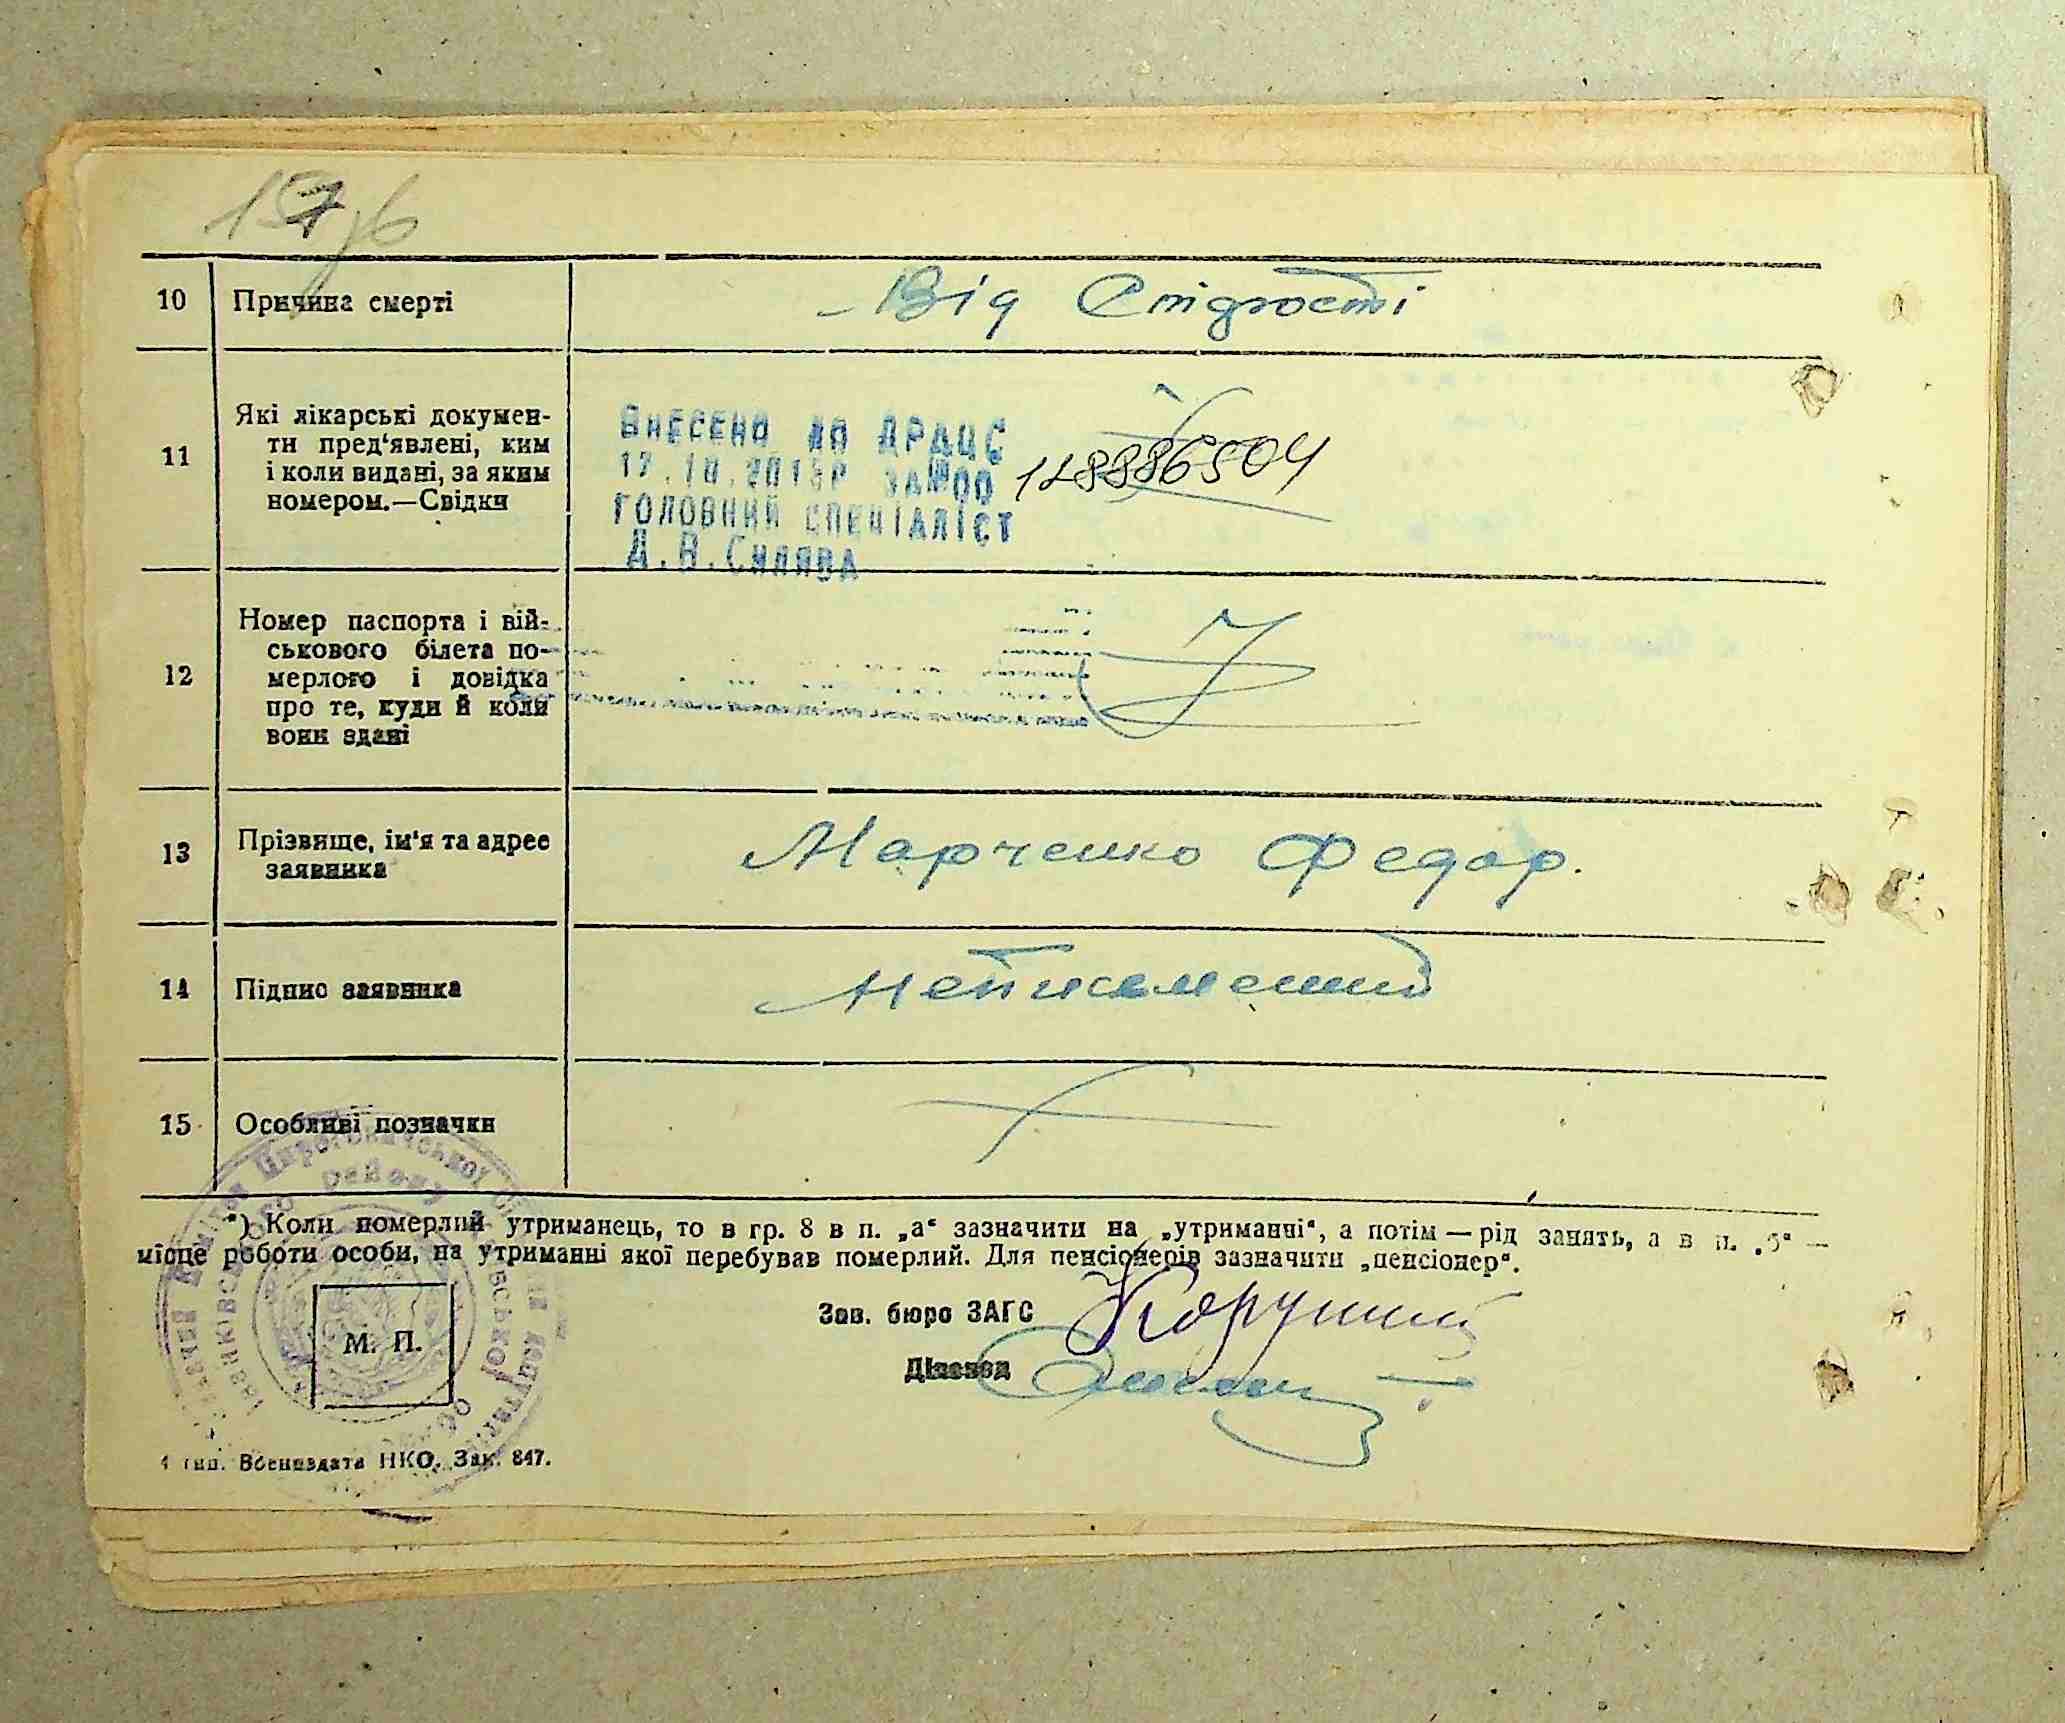 10 Причина смерті Від
11 Які лікарські докумен-
ти пред‘явлені, ким
і коли видані, за яким
номером.—Свідки
ВНЕСЕНО ДО ДРАЦС
17.10.201 Р ЗА №00 128886504
ГОЛОВНИЙ СПЕЦІАЛІСТ
Д.В.Силява
12 Номер паспорта і вій-
ськового білета по-
мерлого і довідка
про те, куди й коли
вони здані
13 Прізвище, ім‘я та адрес
заявника
Марченко Федор.
14 Підпис заявника неписьменний
15 Особливі позначки
*) Коли померлий утриманець, то в гр. 8 в п. „а“ зазначити на „утриманні“, а потім — рід занять, а в п. „б“ —
місце роботи особи, на утриманні якої перебував померлий. Для пенсіонерів зазначити „пенсіонер“.
Зав. бюро ЗАГС
Діловод
М. П.
тип. Воениздата НКО. Зак. 847.